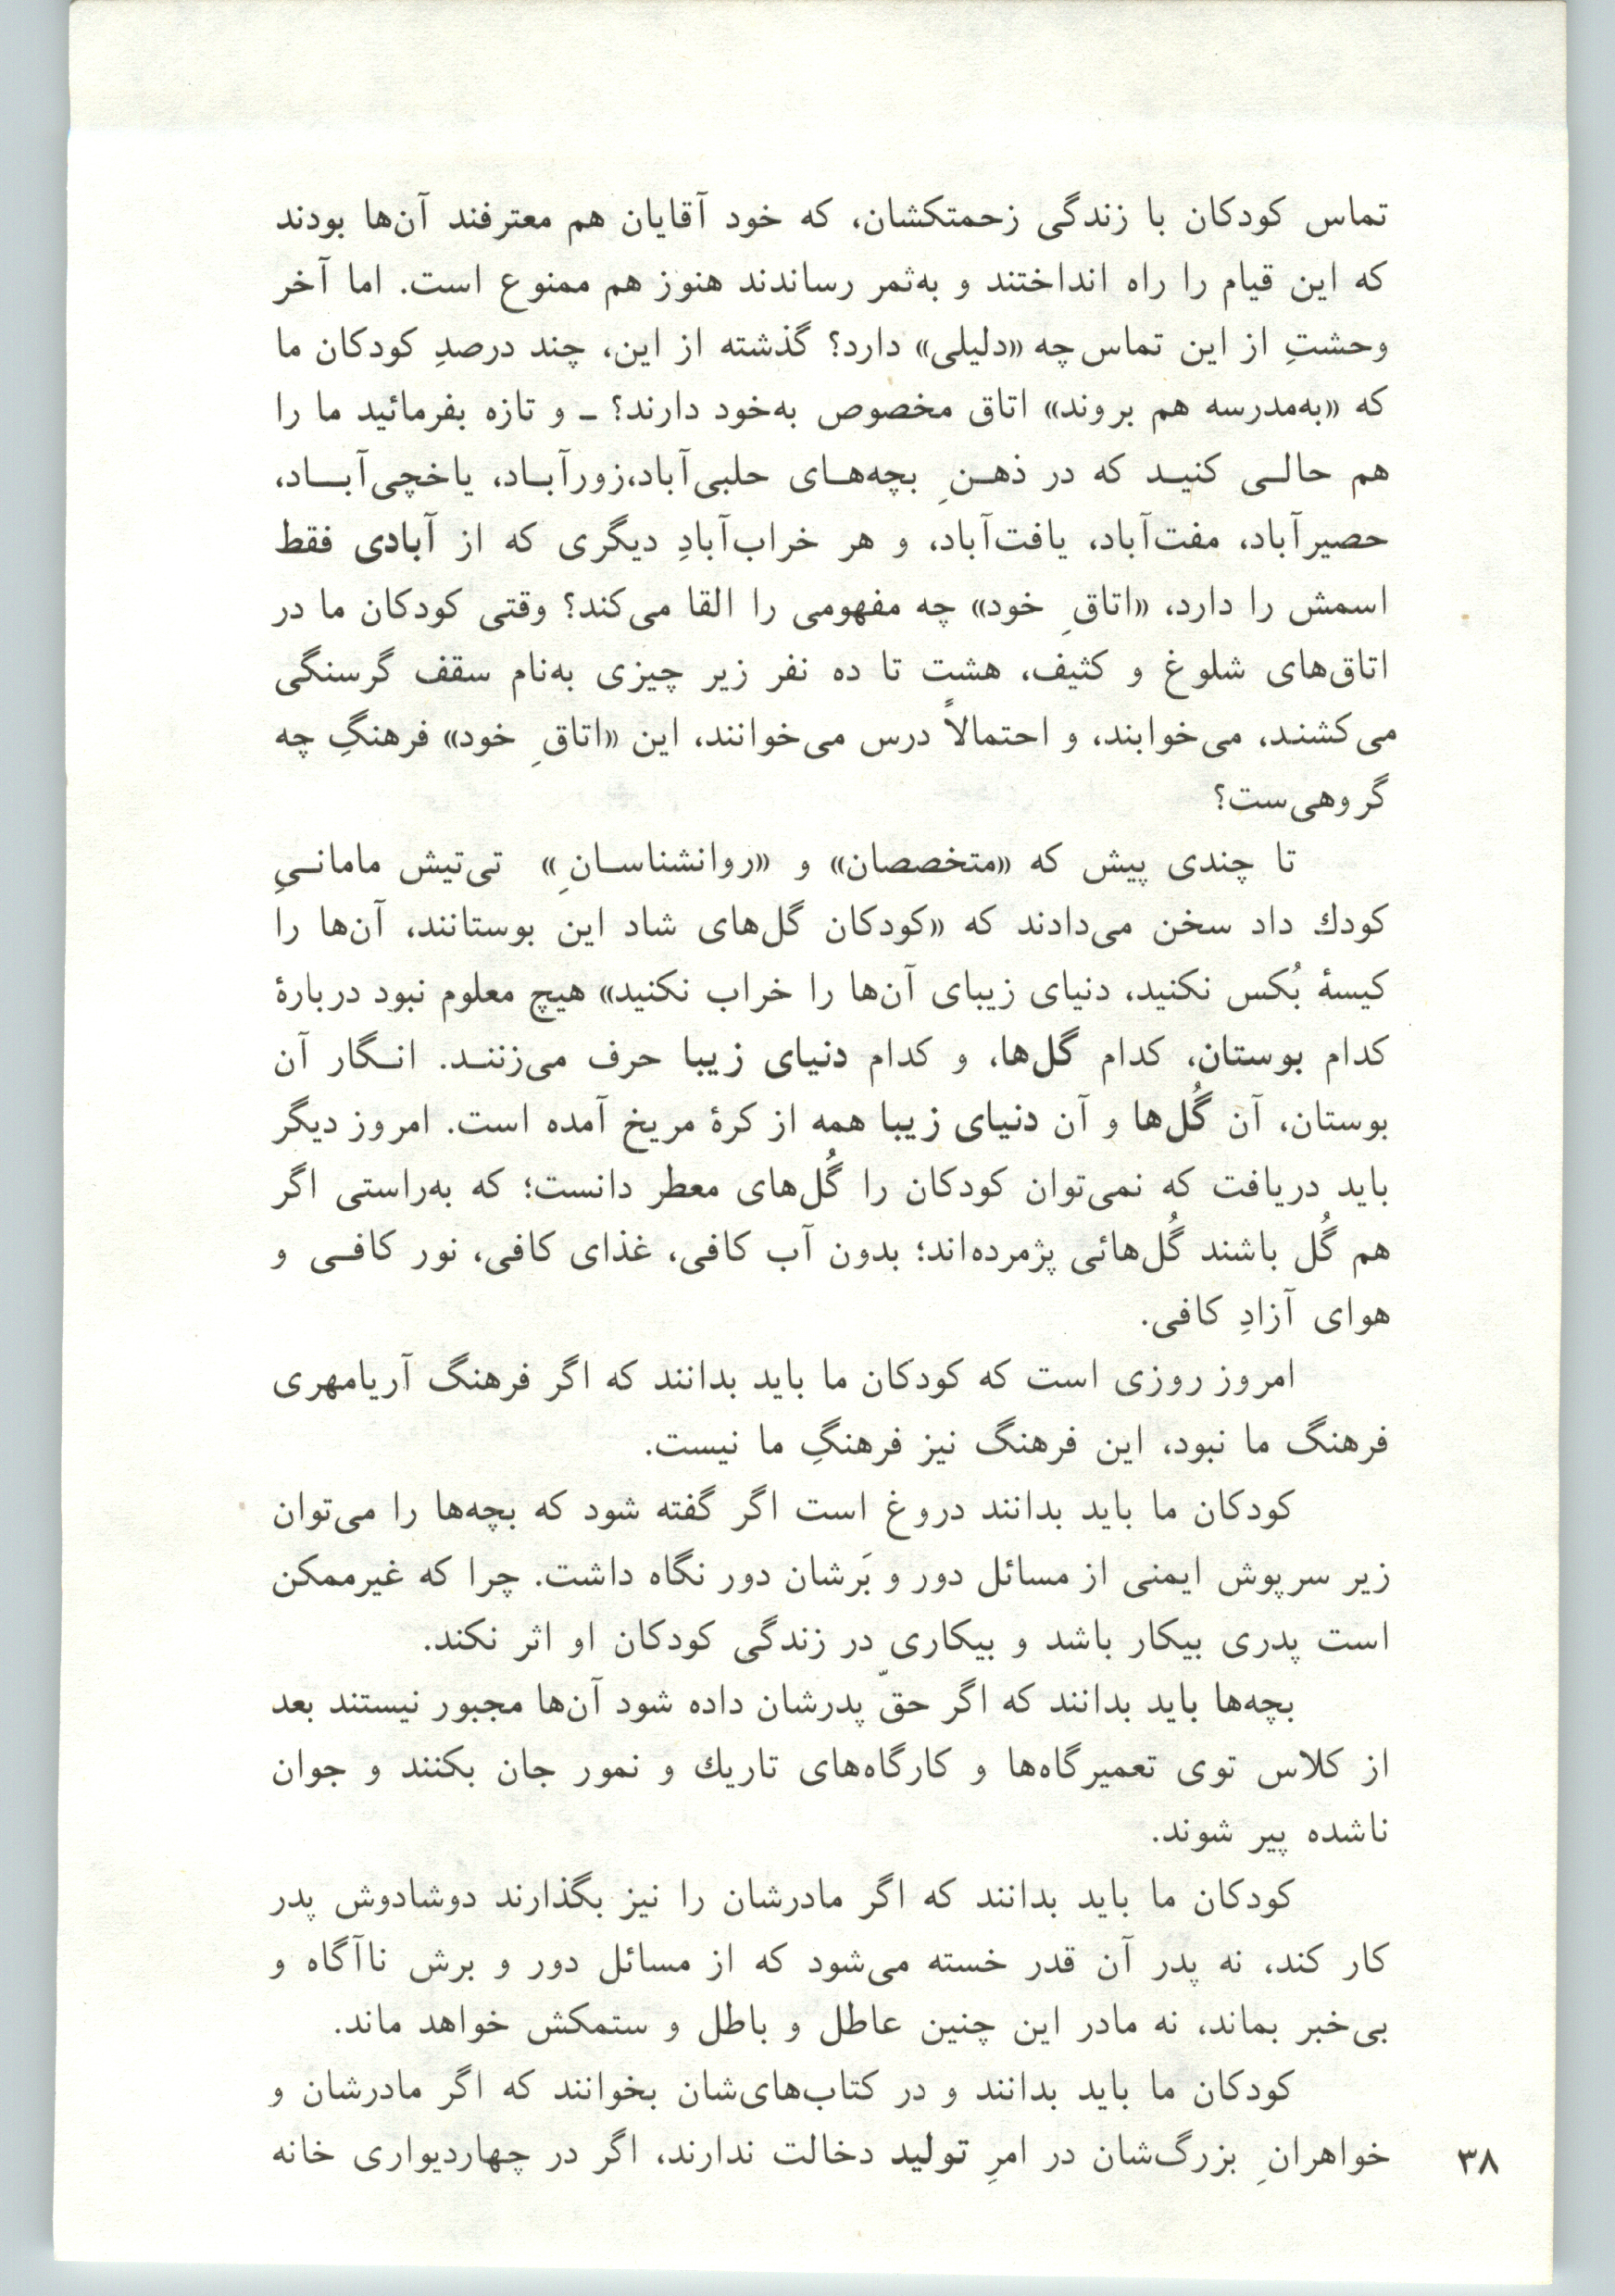 تماس کودکان با زندگی زحمتکشان، که خود آقایان هم معترفند آن‌ها بودند
که این قیام را راه انداختند و به‌ثمر رساندند هنوز هم ممنوع است. اما آخر
وحشتِ از این تماس چه «دلیلی» دارد؟ گذشته از این، چند درصدِ کودکان ما
که «به‌مدرسه هم بروند» اتاق مخصوص به‌خود دارند؟ ـ و تازه بفرمائید ما را
هم حالـی کنیـد که در ذهـنِ بچه‌هـای حلبی‌آباد،زورآبـاد، یاخچی‌آبـاد،
حصیرآباد، مفت‌آباد، یافت‌آباد، و هر خراب‌آبادِ دیگری که از آبادی فقط
اسمش را دارد، «اتاقِ خود» چه مفهومی را القا می‌کند؟ وقتی کودکان ما در
اتاق‌های شلوغ و کثیف، هشت تا ده نفر زیر چیزی به‌نام سقف گرسنگی
می‌کشند، می‌خوابند، و احتمالاً درس می‌خوانند، این «اتاقِ خود» فرهنگِ چه
گروهی‌ست؟
تا چندی پیش که «متخصصان» و «روانشناسـانِ» تی‌تیش مامانـیِ
کودك داد سخن می‌دادند که «کودکان گل‌های شاد این بوستانند، آن‌ها را
کیسهٔ بُکس نکنید، دنیای زیبای آن‌ها را خراب نکنید» هیچ معلوم نبود دربارهٔ
کدام بوستان، کدام گل‌ها، و کدام دنیای زیبا حرف می‌زننـد. انـگار آن
بوستان، آن گُل‌ها و آن دنیای زیبا همه از کرهٔ مریخ آمده است. امروز دیگر
باید دریافت که نمی‌توان کودکان را گُل‌های معطر دانست؛ که به‌راستی اگر
هم گُل باشند گُل‌هائی پژمرده‌اند؛ بدون آب کافی، غذای کافی، نور کافـی و
هوای آزادِ کافی.
امروز روزی است که کودکان ما باید بدانند که اگر فرهنگ آریامهری
فرهنگ ما نبود، این فرهنگ نیز فرهنگِ ما نیست.
کودکان ما باید بدانند دروغ است اگر گفته شود که بچه‌ها را می‌توان
زیر سرپوش ایمنی از مسائل دور و بَرشان دور نگاه داشت. چرا که غیرممکن
است پدری بیکار باشد و بیکاری در زندگی کودکان او اثر نکند.
بچه‌ها باید بدانند که اگر حقّ پدرشان داده شود آن‌ها مجبور نیستند بعد
از کلاس توی تعمیرگاه‌ها و کارگاه‌های تاریك و نمور جان بکنند و جوان
ناشده پیر شوند.
کودکان ما باید بدانند که اگر مادرشان را نیز بگذارند دوشادوش پدر
کار کند، نه پدر آن قدر خسته می‌شود که از مسائل دور و برش ناآگاه و
بی‌خبر بماند، نه مادر این چنین عاطل و باطل و ستمکش خواهد ماند.
کودکان ما باید بدانند و در کتاب‌های‌شان بخوانند که اگر مادرشان و
خواهرانِ بزرگ‌شان در امرِ تولید دخالت ندارند، اگر در چهاردیواری خانه
۳۸